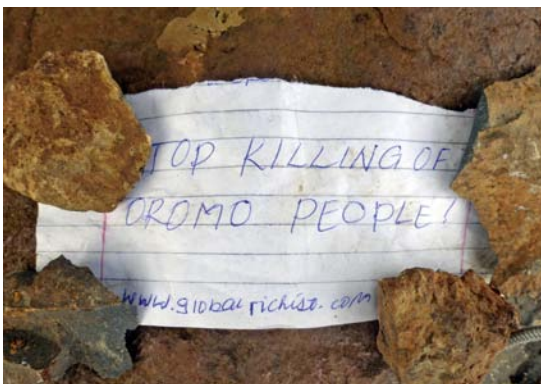 TOP KILLING OF
OROMO PEOPLE!
www.globalrichist.com